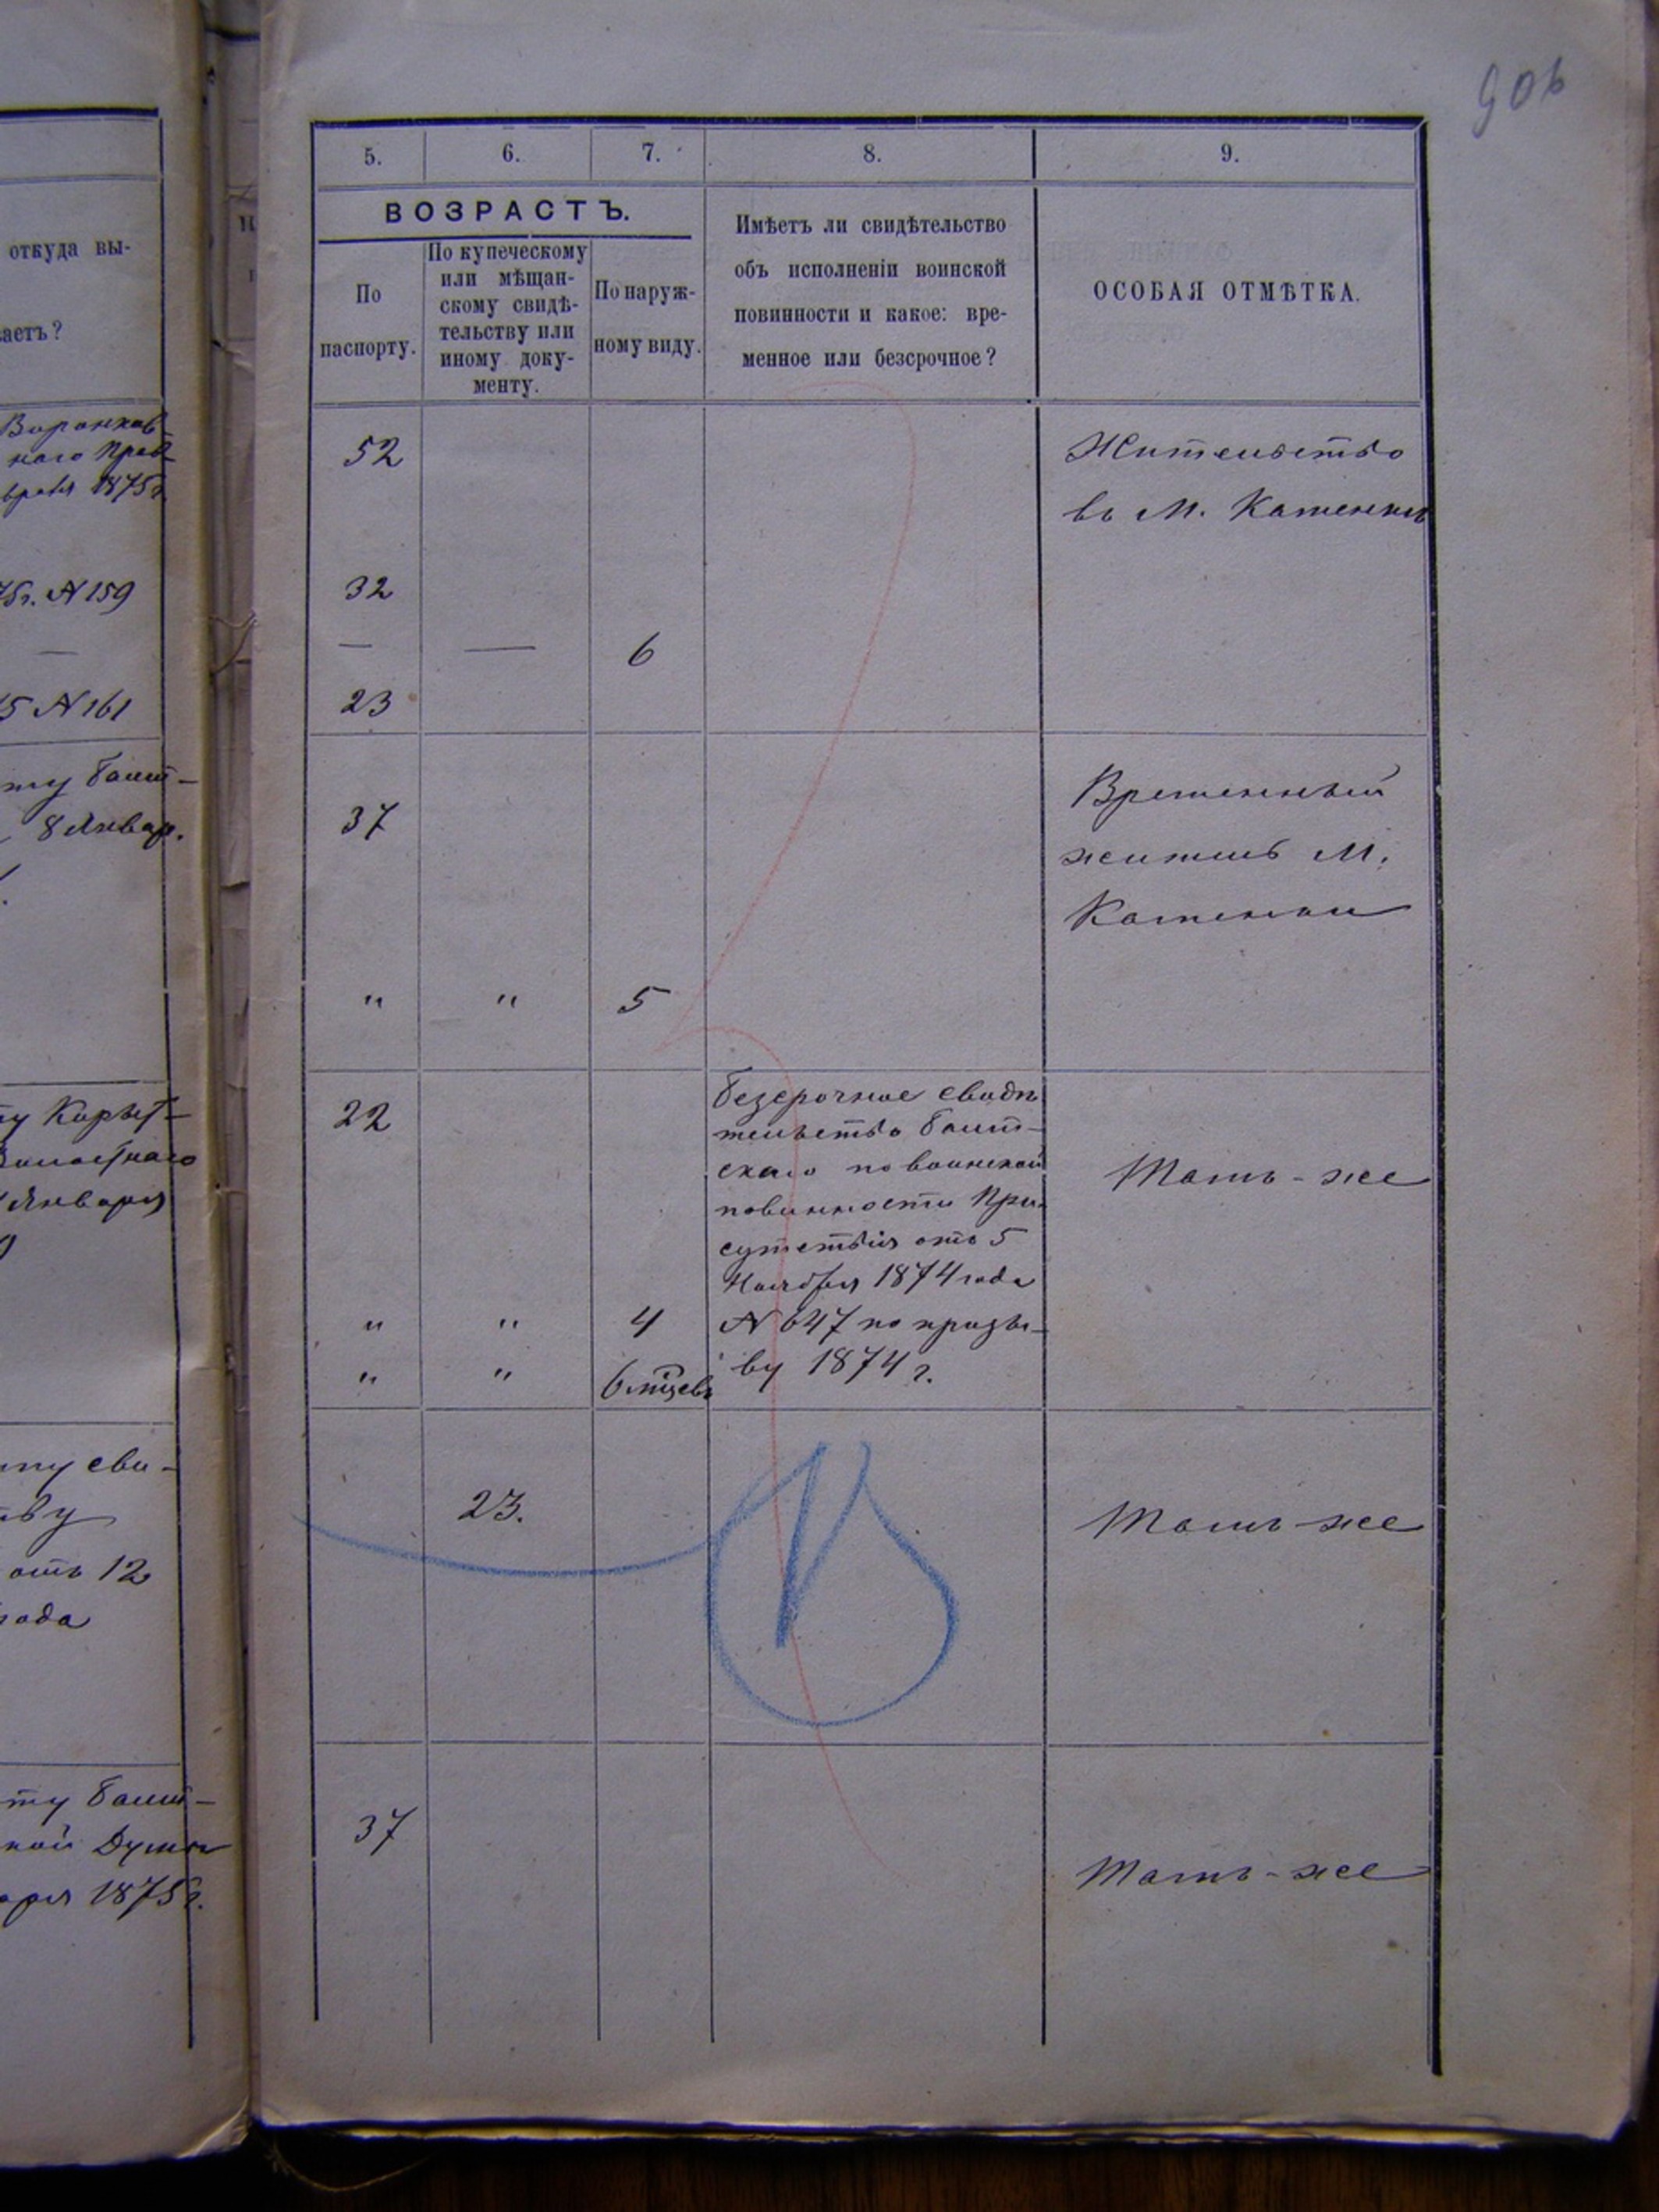 906
откуда вы-
аетъ?
Воронков-
наго Прав
враля 1875 г
75 г. № 159
—
75 № 161
ту Балт-
8 Январ.
Января
ту сви-
тву
отъ 12
года
ту Балт-
кой Думы
аря 1875 г.
5. 6. 7. 8. 9.
ВОЗРАСТЪ.
По
паспорту.
По купеческому
или мѣщан-
скому свидѣ-
тельству или
иному доку-
менту.
По наруж-
ному виду.
Имѣетъ ли свидѣтельство
объ исполненіи воинской
повинности и какое: вре-
менное или безсрочное?
ОСОБАЯ ОТМѢТКА.
52
Жительство
въ М. Каменкѣ
32
— — 6
23
37
Временный
житель М.
Каменки
" " 5
22
безсрочное свидѣ
тельство Балт-
скаго по воинской
повинности При-
сутствія отъ 5
Ноября 1874 года
№ 647 по призы-
ву 1874 г.
Тамъ-же
" " 4
" " 6 мѣсцевъ
23.
Тамъ-же
37
Тамъ-же